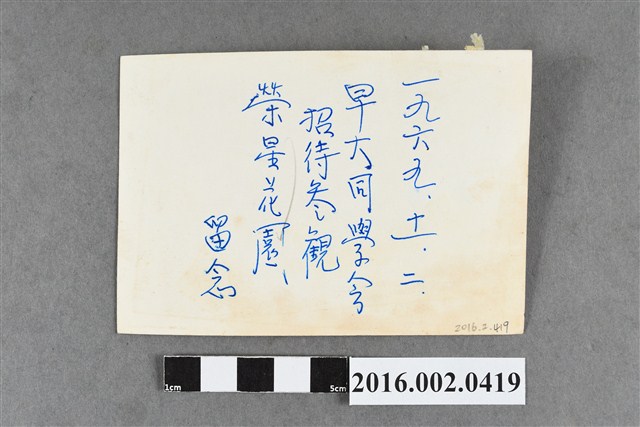 一九六五、十一、二.
早大同學会
招待参觀
榮星花園
留念
2016.2.419
1cm
5cm
2016.002.0419